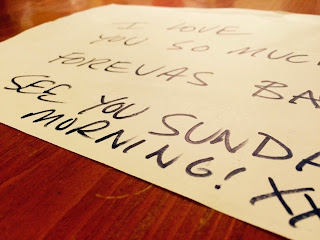 I LOVE
YOU SO MUCH
FOREVAS BA
SEE YOU SUNDA
MORNING! XX